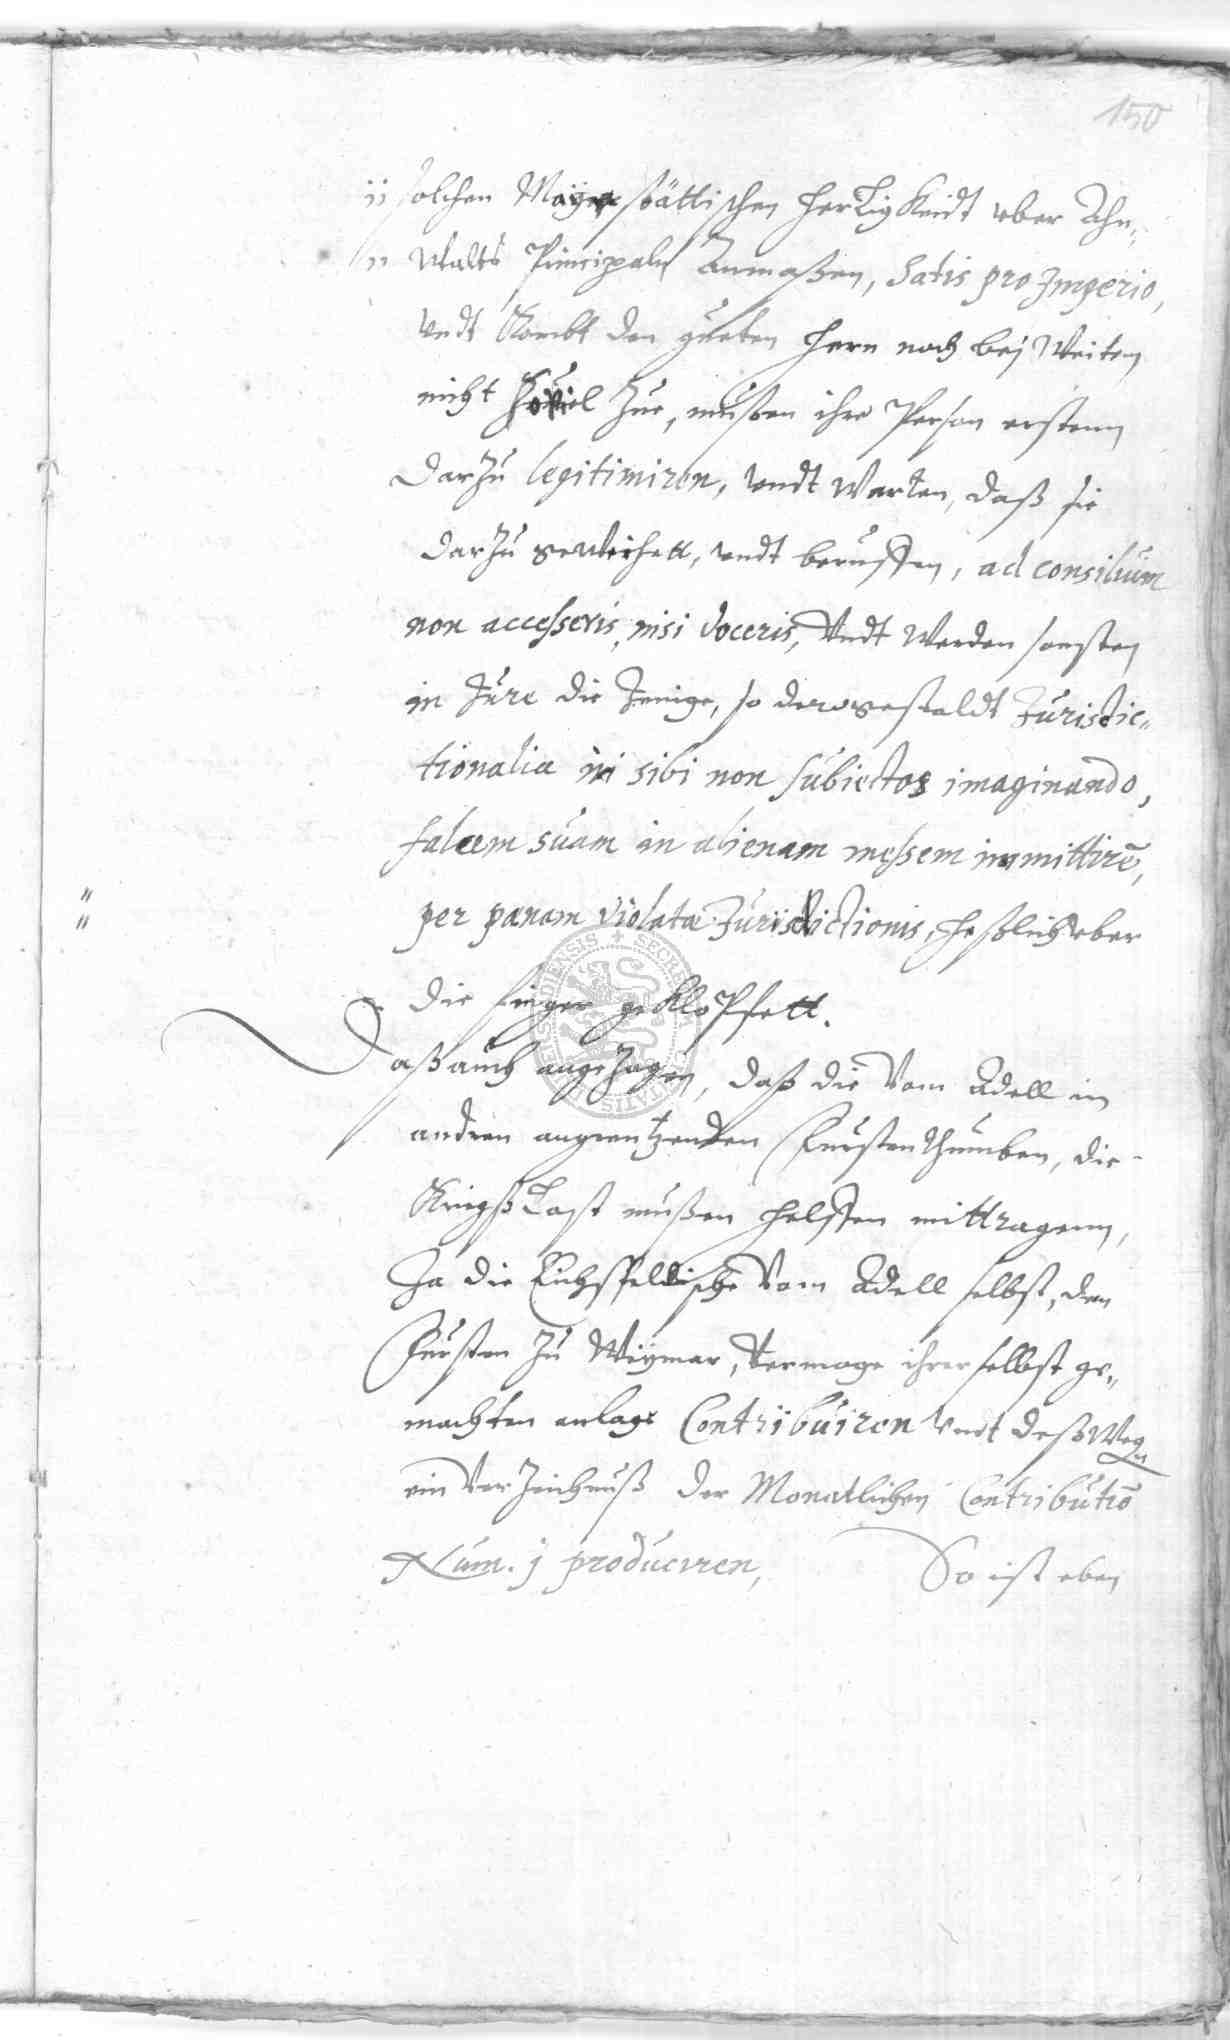 150
solchen Mayestättischen herligkeidt vber Ahn„
walts Principaln Anmaßen, satis pro Imperio,
vndt Kombt den gueten hern noch bej Weiten
nicht soviel Zue, mußen ihre Person erstenn
darzu legitimiren, vndt Warten, daß sie
darzu geweihett, vndt beruffen, ad consilium
non accesseris, nisi voceris, Vndt Werden sonsten
in Jure die Jenige, so derogestaldt Jurisdic„
tionalia in sibi non subiectos imaginando,
falcem suam in alienam messem immittirẽ,
per pænam violatæ Jurisdictionis, heßlich vber
die finger geklopffett.
Daß auch angezogen, daß die Vom Adell in
andren angrentzenden Furstenthumben, die
Kriegß Last mußen helffen mittragenn,
Ja die Eichsfeldische Vom Adell selbst, den
Fursten zu Weymar, Vermoge ihrer selbst ge„
machten anlage Contribuiren vndt deßwegn
ein Verzeichnuß der Monatlichen Contributiõ
Num. j produciren,
So ist eben
SECRE